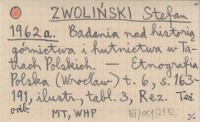 ZWOLIŃSKI Stefan
1962a. Badania nad historią
górnictwa i hutnictwa w Ta-
trach Polskich. — Etnografia
Polska (Wrocław) t. 6, s. 163-
191, ilustr., tabl. 3, Rez. Też
odb.
MT, WHP